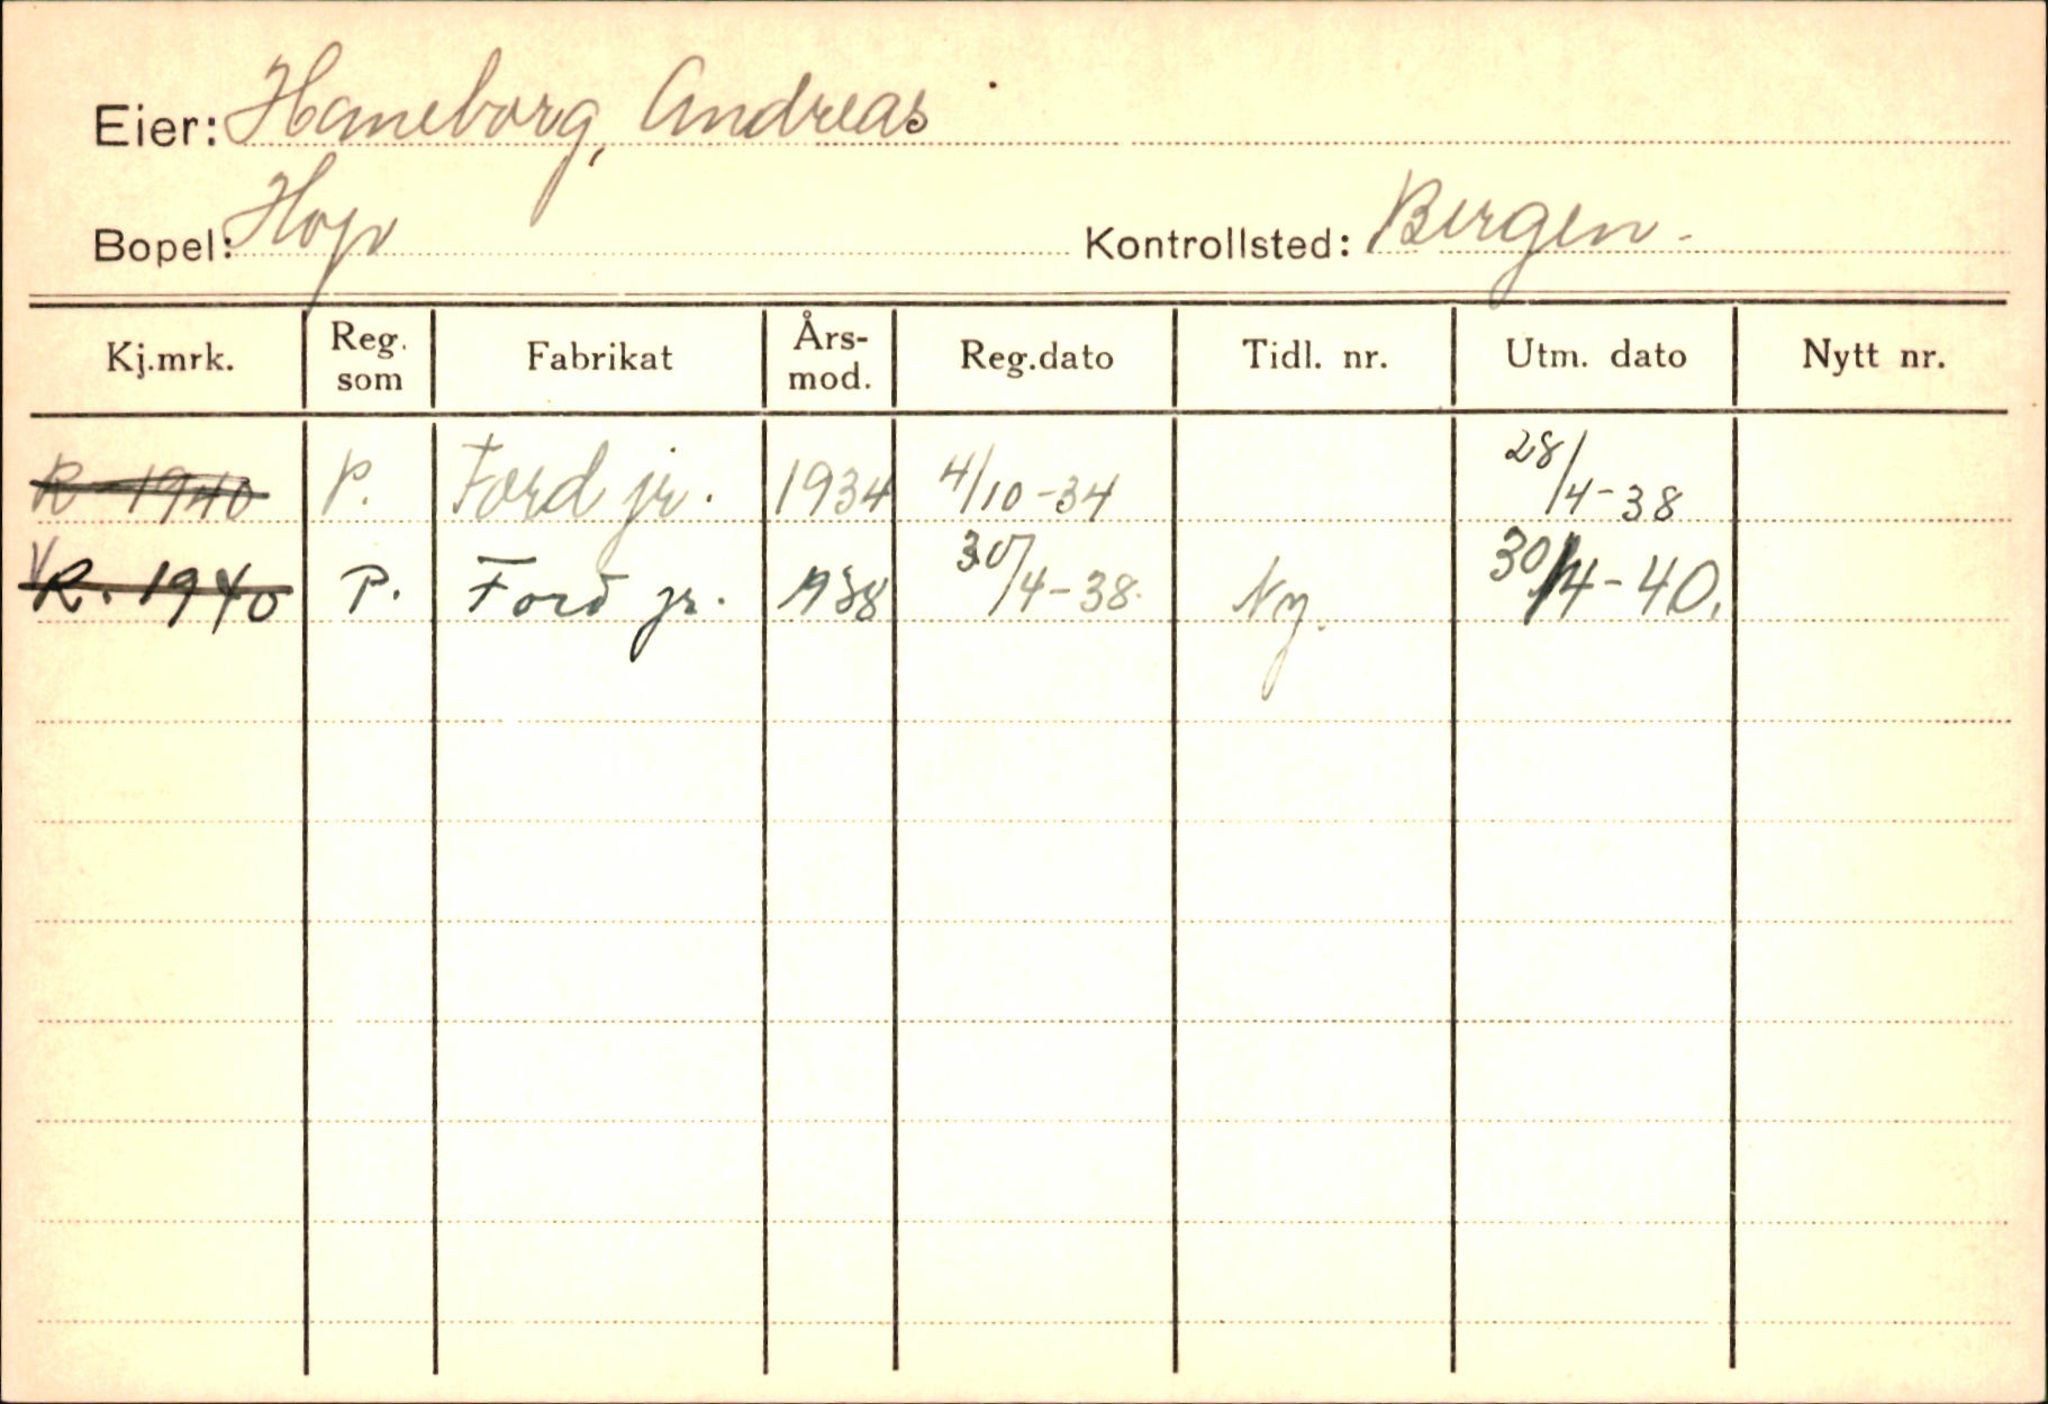 Eier: Haneborg, Andreas
Bopel: Hop Kontrollsted: Bergen -
Kj.mrk. Reg. som Fabrikat Års-mod. Reg.dato Tidl. nr. Utm. dato Nytt nr.
R-1940 P. Ford jr. 1934 4/10-34 28/4-38
R. 1940 P. Ford jr. 1938 30/4-38. Ny. 30/4-40.